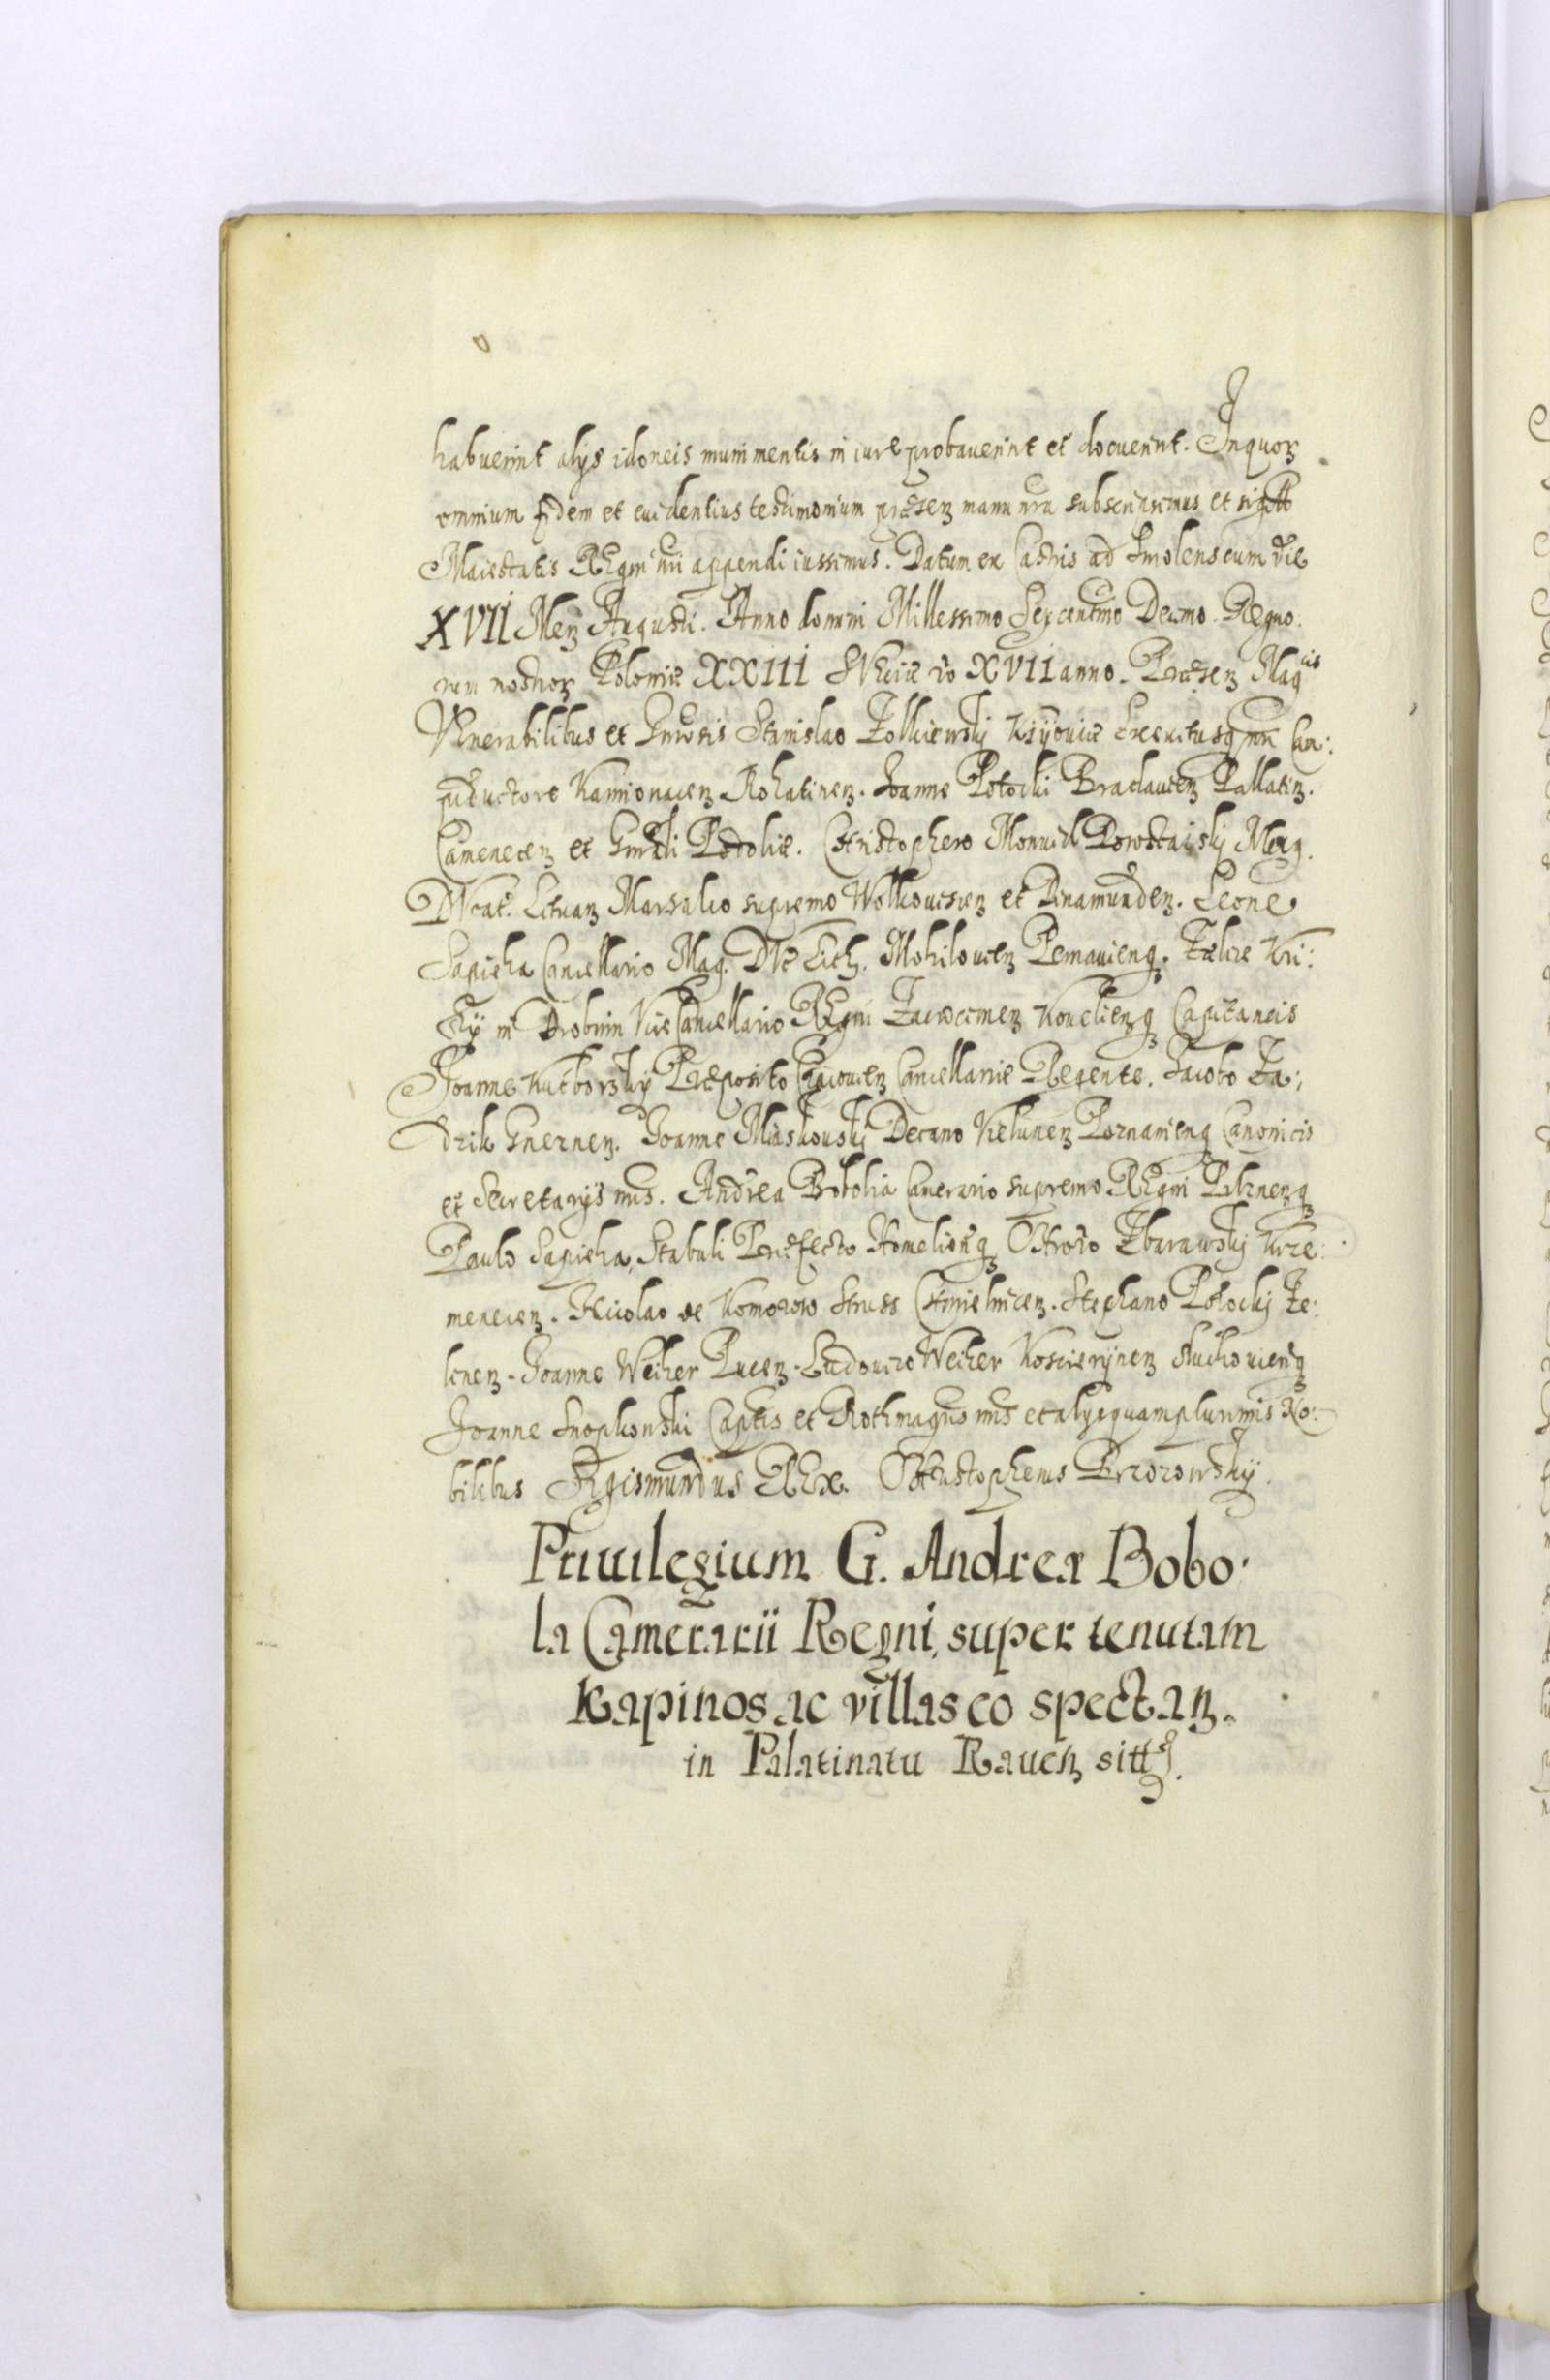 habuerint alys idoneis munimentis in iure probauerint et docuerint. In quoꝝ
omnium fidem et euidentius testimonium præsenꝫ manu nra subscripsimus et sigillo
Maiestatis Regni nri appendi iussimus. Datum ex Castris ad Smolenscum die
XVII Menꝫ Augusti. Anno domini Millessimo Sexcentmo Decimo. Regno.
rum nostroꝝ Poloniæ XXIII Sueciæ vo XVII anno. Præsenꝫ Magcis
Venerabilibus et Gnrosis Stanislao Zolkiewskj Kijouiæ Exercitusq nri Cam:
piductore Kamionacenꝫ Rohatinenꝫ. Joanne Potocki Braclauienꝫ Pallatinꝫ.
Camenecenꝫ et Gnrali Podoliæ. Christophero Monuid Dorostaiskj Mag.
Ducat. Lituanꝫ Marsalco supremo Wolkouiscenꝫ et Dinamundenꝫ. Leone
Sapieha Cancellario Mag. Dus Lith. Mohilouienꝫ Pernauienq. Fælice Kri:
ski in Drobnin Vice Cancellario Regni Kouelienꝫq Capitaneis
Joanne Kuczborskij Præposito Cracouienꝫ Cancellariæ Regente. Jacobo Za:
dzik Gnernenꝫ. Joanne Miaskouskj Decano Vielunenꝫ Poznanienq Canonicis
et Secretarijs nris. Andrea Bobolia Camerario supremo Regni Pilznenꝫq
Paulo Sapieha, Stabuli Præfecto Homelienꝫq Zbarawskj Krze:
menecenꝫ. Nicolao de Komorow Struss Chmielnicenꝫ. Stephano Potockj Fe:
linenꝫ. Joanne Weiher Pucenꝫ. Ludouico Weiher Koscierijnenꝫ Sluchouienꝫq
Joanne Snopkouski Captis et Rothmagris nris et alys quamplurimis No:
bilibus Sigismundus Rex. Christophorus Brzozowskij.
Priuilegium G. Andreæ Bobo.
la Camerarii Regni, super tenutam
Kapinos ac villas eo spectanꝫ.
in Palatinatu Rauenꝫ sitt.